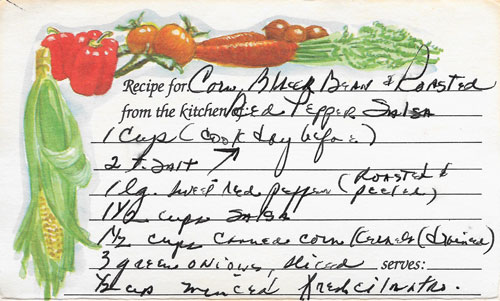 Recipe for Corn, Black Bean & Roasted
from the kitchen Red Pepper Salsa
1 cup (cook day before)
2 t. salt
1 lg. sweet red pepper (roasted & peeled)
1 1/2 cups salsa
1/2 cups canned corn kernels (drained)
3 green onions, sliced serves:
1/2 cup minced fresh cilantro.